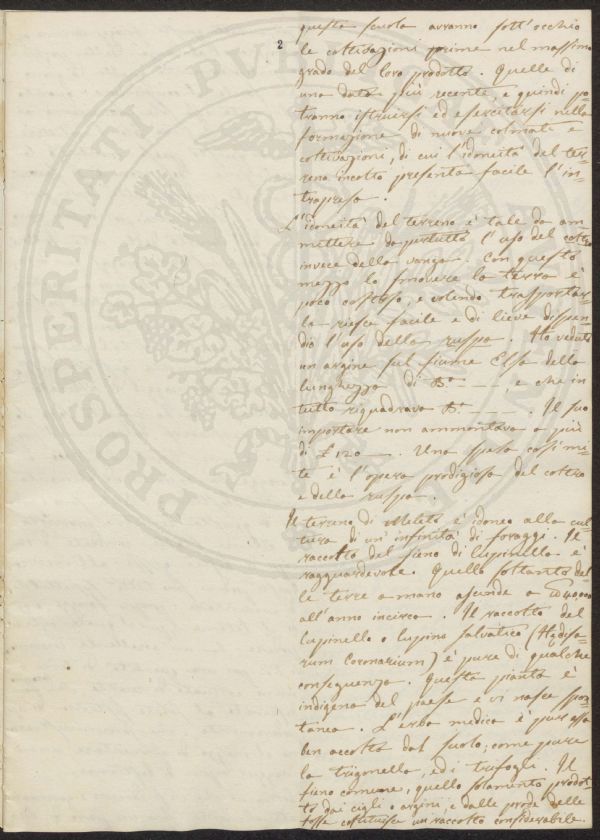 2
questa scuola avranno sott'occhio
le coltivazioni prime nel massimo
grado del loro prodotto. Quelle di
una data più recente e quindi po-
tranno istruirsi ed esercitarsi nella
formazione di nuove colmate e
coltivazioni, di cui l'idoneità del ter-
reno incolto presenta facile l'in-
trapresa.
L'idoneità del terreno è tale da am-
mettere da pertutto l'uso del coltro
invece della vanga. Con questo
mezzo lo smovere la terra è
poco costoso, e volendo trasportar-
la riesce facile e di lieve dispen-
dio l'uso della ruspa. Ho veduto
un argine sul fiume Elsa della
lunghezza di B.ª — — e che in
tutto riquadrava B.ª — — . Il suo
importare non ammontava a più
di £ 120 —. Una spesa così mi-
te è l'opera prodigiosa del coltro
e della ruspa.
Il terreno di Meleto è idoneo alla cul-
tura di un'infinità di foraggi. Il
raccolto del fieno di lupinella è
ragguardevole. Quello soltanto del-
le terre a mano ascende a 40,000
all'anno incirca. Il raccolto del
lupinello o lupino salvatico (Hedisa-
rum Coronarium) è pure di qualche
conseguenza. Questa pianta è
indigena del paese e vi nasce spon-
tanea. L'erba medica è pur assai
ben accolta dal suolo; come pure
la trigonella, ed i trafogli. Il
fieno comune, quello solamente prodot-
to dai cigli o argini, e dalle prode delle
fosse costituisce un raccolto considerabile.
PROSPERITATI PVBLICAE